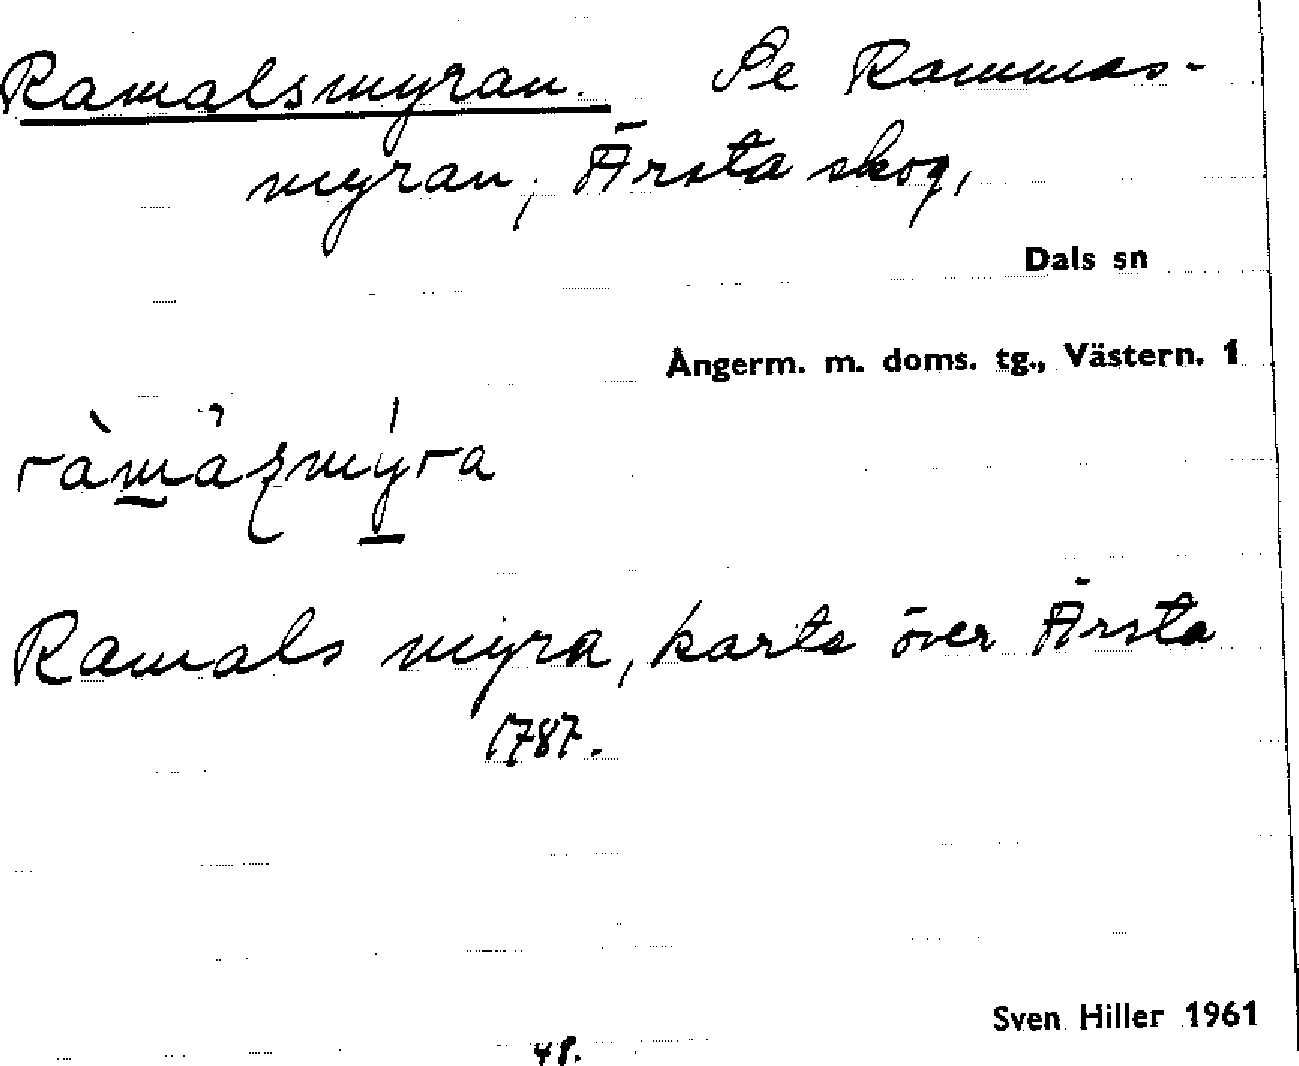 Ramalsmyran. Se Rammas-
myran, Ärsta skog,
Dals sn
Ångerm. m. doms. tg., Västern. 1
Ramals myra, karta över Ärsta
1787.
Sven Hiller 1961
48.